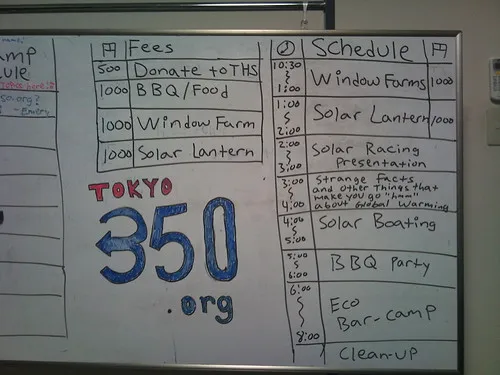 amp
ule
so.org?
- Emery
円 Fees
500 Donate to THS
1000 BBQ/Food
1000 Window Farm
1000 Solar Lantern
TOKYO
350
.org
Schedule 円
10:30
~
1:00
Window Farms 1000
1:00
~
2:00
Solar Lantern 1000
2:00
~
3:00
Solar Racing
Presentation
3:00
~
4:00
Strange Facts
and Other Things that
make you go "hmm"
about Global Warming
4:00
~
5:00
Solar Boating
5:00
~
6:00
BBQ Party
6:00
~
8:00
Eco
Bar-camp
Clean-up